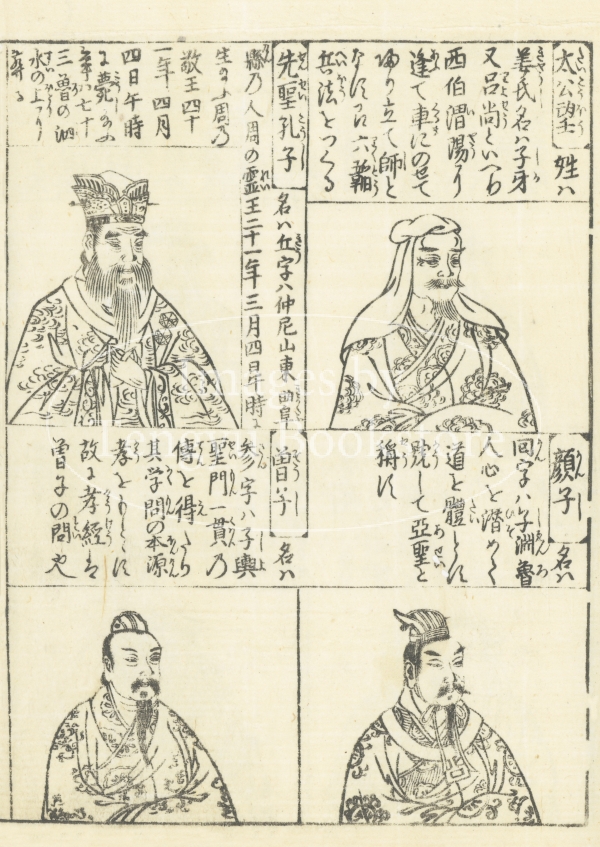 太公望 姓ハ
姜氏名ハ子牙
又呂尚といへり
西伯渭陽より
逢て車にのせて
帰り立て師と
なす
六韜
兵法をつくる
先聖孔子 名ハ丘字ハ仲尼山東曲阜
縣乃人周の霊王二十一年三月四日午時に
生る周乃
敬王四十
一年四月
四日午時
に薨
年七十
三魯の泗
水の上り
葬る
顔子 名ハ
回字ハ子淵魯
人心を潜めて
道を體
して亞聖と
稱す
曽子 名ハ
参字ハ子輿
聖門一貫乃
傳を得たり
其学問の本源
孝をもとゝす
故に孝經は
曽子の問也